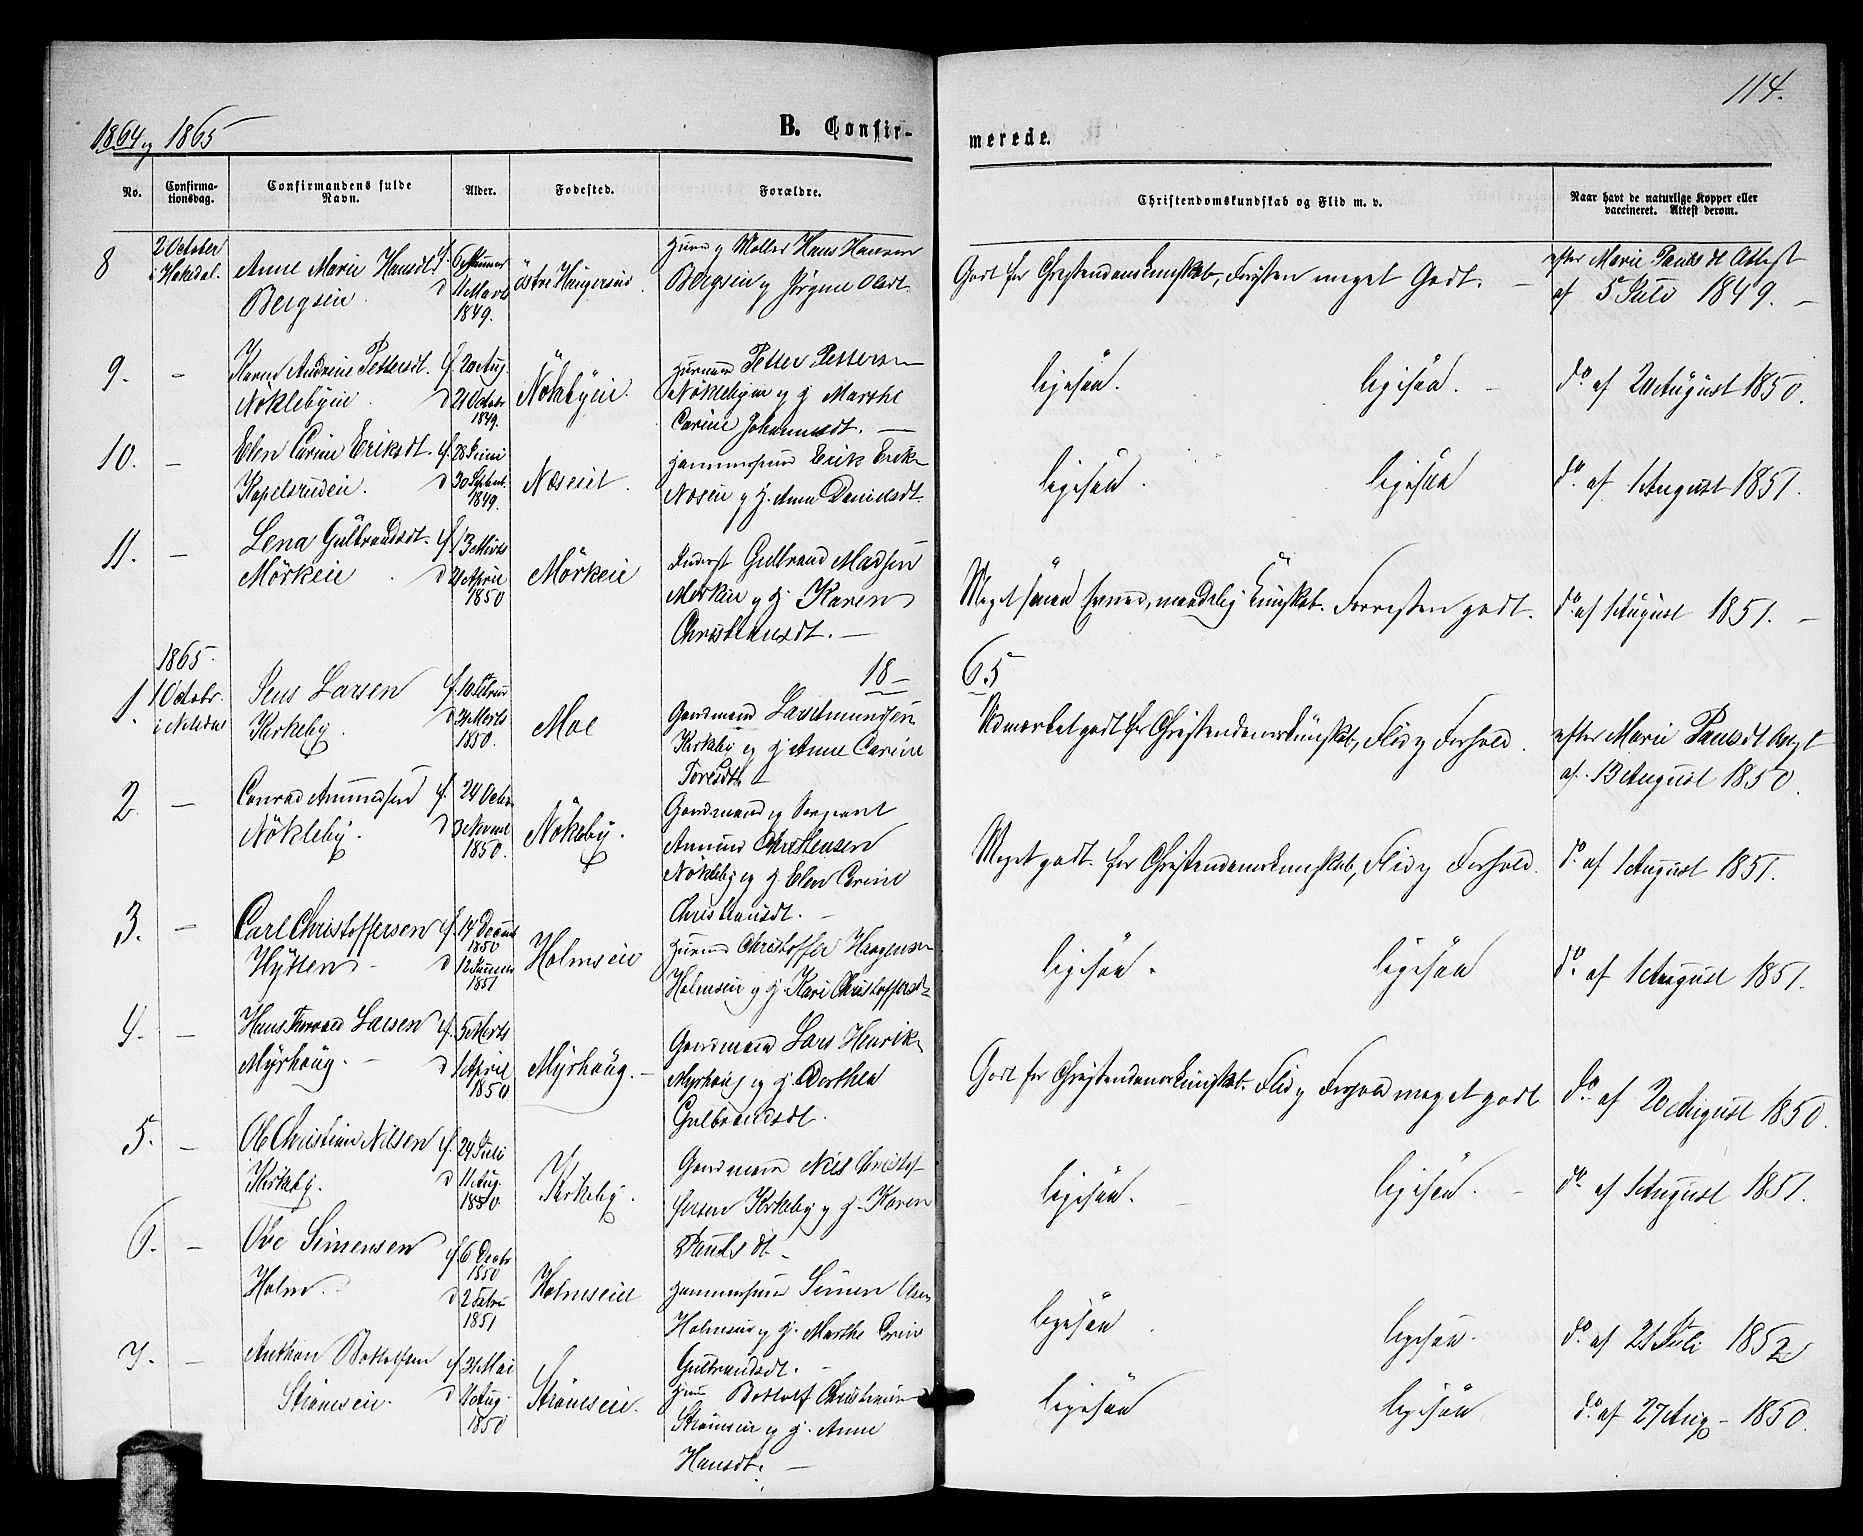 114.
1864 og 1865
B. Confir-
merede.
No.
Confirma-
tionsdag.
Confirmandens fulde
Navn.
Alder.
Fødested.
Forældre.
Christendomskundskab og Flid m. v.
Naar havt de naturlige Kopper eller
vaccineret. Attest derom.
8
2 October
i Hakdal.
Anne Marie Hansdt.
Bergseie.
f. 6
d 11 Marts
1849.
østre
Hans Hansen
Bergseie og Jørgine Olsdt
Godt for Christendomskundskab, Forresten meget Godt. -
efter Marie Paulsdt Attest
af 5 Juli 1849. -
9. -
Karen Andrine Pettersdt.
Nöklebyeie.
f. 20 Aug.
d 21 Octobr
1849.
Nökebyeie.
Petter Petters-
Nöklebyeie og h Marthe
Carine Johannesdt. -
ligesaa.
ligesaa. -
do af 20 August 1850.
10. -
Elen Carine Eriksdt.
Kapelsrudeie.
f. 28 Juni
d 30 Septbr.
1849.
Næseiet.
Erik Erik-
Næseie og h. Anne Danielsdt
ligesaa.
ligesaa
do. af 1 August 1851.
11. -
Lena Gulbrandsdt.
Mörkeie.
f. 13 Marts
d 21 April
1850
Mörkeie
Inderst Gulbrand Madsen
Mörkeie og h. Karen
Christiansdt. -
Meget Evner, maadelig Kundskab. Forresten godt.
do. af 1 August 1851. -
1865.
18-
65
1.
1 October.
i Nitedal
Jens Larsen
Kirkeby.
f. 10 Febru
d 31 Marts
1850.
Moe
Gaardmand Lars Amundsen
Kirkeby og h. Anne Carine
Toresdt.
Udmærket godt for Christendomskundskab, Flid og Forhold.
efter Marie Paulsdt
af 13 August 1850.
2. -
Conrad Amundsen
Nökleby.
f. 24 Octbr.
d 3 Novembr
1850.
Nökleby.
Gaardmand og Sergeant
Amund Christensen
Nökleby og h. Elen Carine
Christiansdt. -
Meget godt for Christendomskundskab, Flid og Forhold.
do. af 1 August 1851.
3. -
Carl Christoffersen
Hytten -
f. 14 Decemb
1850
d 12 Januar
1851
Holmseie
Christoffer Haagensen
Holmseie og h. Kari Christoffersdt
ligesaa.
ligesaa
do. af 1 August 1851.
4. -
Hans Larsen
Myrhaug. -
f. 5 Marts
d 1 April
1850
Myrhaug. -
Gaardmand Lars Henrik-
Myrhaug og h. Dorthea
Gulbrandsdt.
Godt for Christendomskundskab. Flid og Forhold meget godt
do. af 20 August 1850.
5. -
Ole Christian Nilsen
Kirkeby.
f. 24 Juli
d 11 Aug.
1850.
Kirkeby.
Gaardmand Nils Christof-
fersen Kirkeby og h. Karen
Paulsdt. -
ligesaa.
ligesaa. -
do. af 1 August 1851.
6. -
Ove Simensen
Holm.
f. 6 Decbr
1850
d 2 Febru
1851
Holmseiet
Simen Olsen
Holmseie og h. Marthe Carine
Gulbrandsdt. -
ligesaa
ligesaa.
do. af 21 Juli 1852
7. -
Anthon Bottolfsen
Strömseie.
f 31 Mai
d Aug.
1850
Strömseie.
Bottolf Christiansen
Strömseie og h. Anne
Hansdt. -
ligesaa
ligesaa
do. af 27 Aug. 1850.